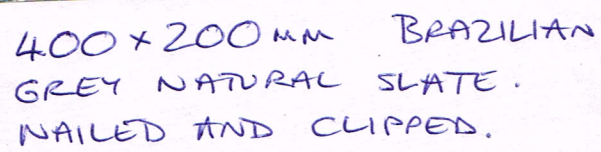 400×200MM BRAZILIAN
GREY NATURAL SLATE.
NAILED AND CLIPPED.